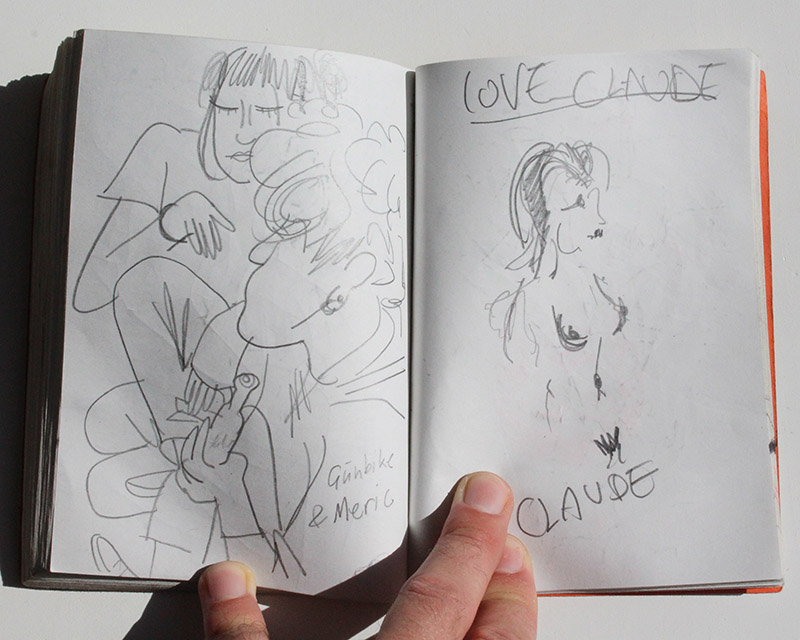 Günbike
& Meric
LOVE CLAUDE
CLAUDE